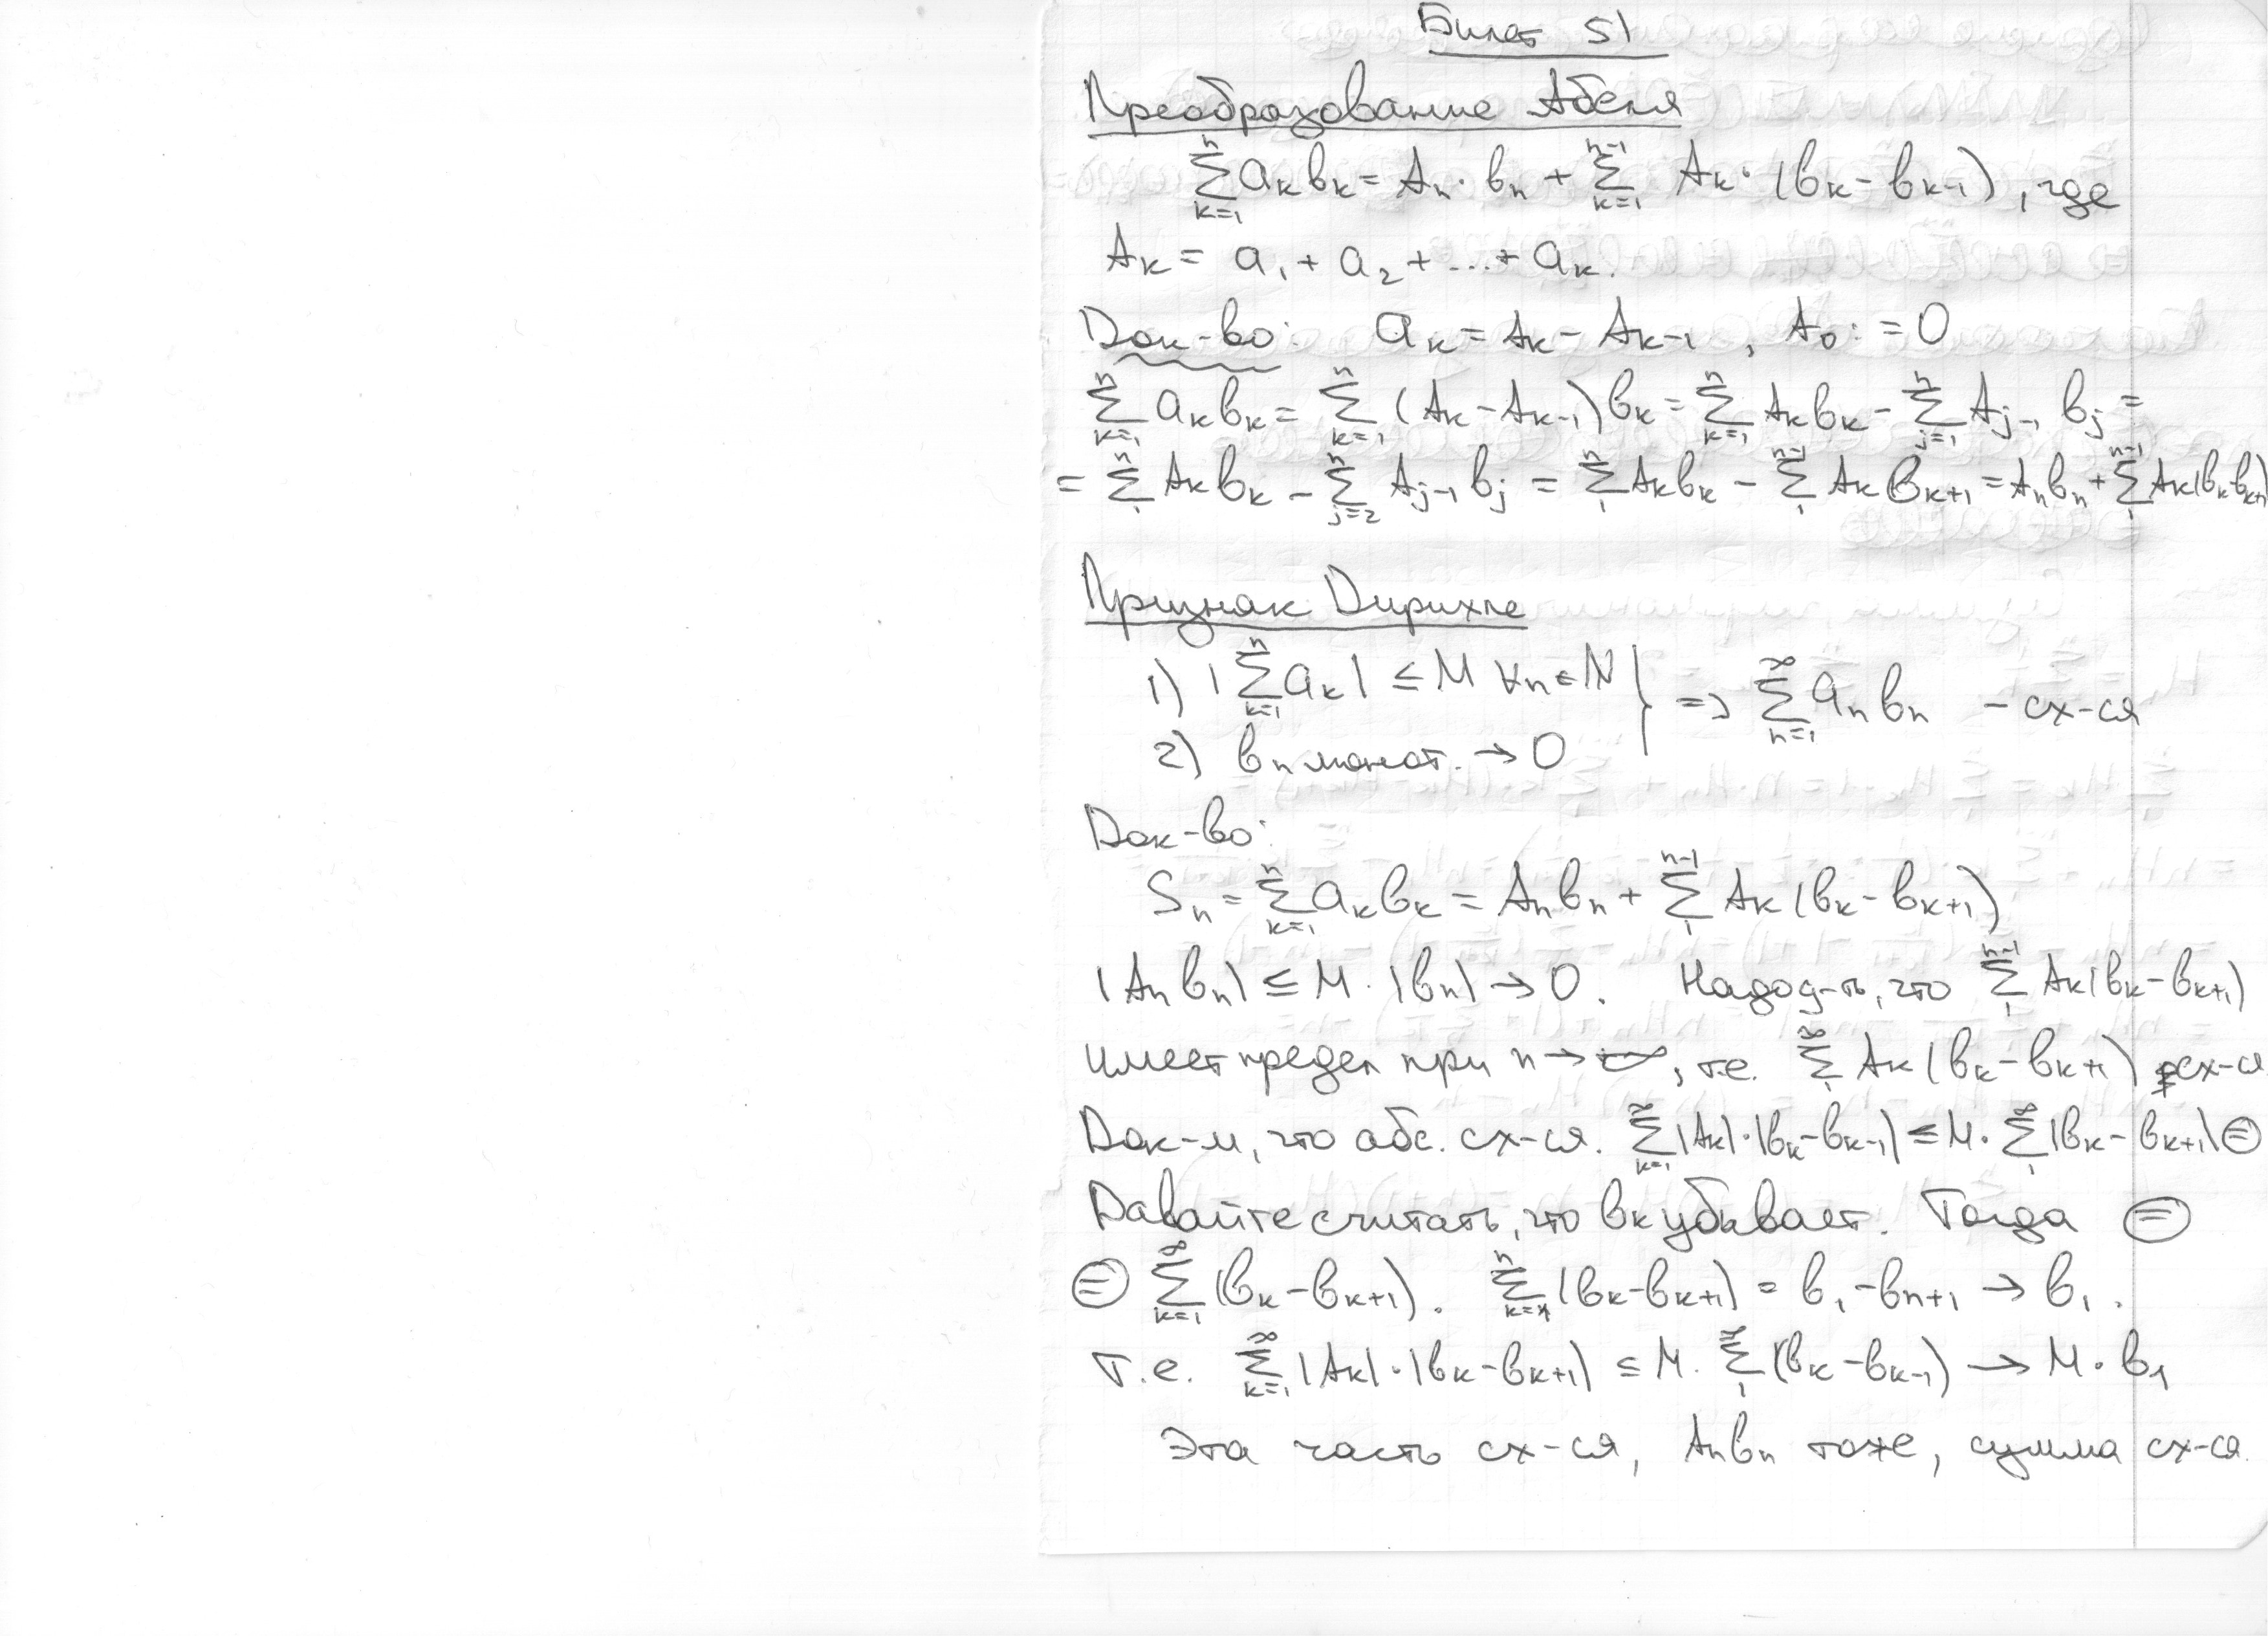 Билет 51
Преобразование Абеля
∑_{k=1}^{n} a_k b_k = A_n · b_n + ∑_{k=1}^{n-1} A_k · (b_k - b_{k-1}), где
A_k = a_1 + a_2 + ... + a_k.
Док-во: a_k = A_k - A_{k-1}, A_0 := 0
∑_{k=1}^{n} a_k b_k = ∑_{k=1}^{n} (A_k - A_{k-1}) b_k = ∑_{k=1}^{n} A_k b_k - ∑_{j=1}^{n} A_{j-1} b_j =
= ∑_{1}^{n} A_k b_k - ∑_{j=2}^{n} A_{j-1} b_j = ∑_{1}^{n} A_k b_k - ∑_{1}^{n-1} A_k b_{k+1} = A_n b_n + ∑_{1}^{n-1} A_k (b_k b_{k+1})
Признак Дирихле
1) |∑_{k=1}^{n} a_k| ≤ M ∀n ∈ N
2) b_n монот. → 0 } => ∑_{n=1}^{∞} a_n b_n - сх-ся
Док-во:
S_n = ∑_{k=1}^{n} a_k b_k = A_n b_n + ∑_{1}^{n-1} A_k (b_k - b_{k+1})
|A_n b_n| ≤ M · |b_n| → 0. Надо д-ть, что ∑_{1}^{n-1} A_k (b_k - b_{k+1})
имеет предел при n → +∞, т.е. ∑_{1}^{∞} A_k (b_k - b_{k+1}) сх-ся
Док-м, что абс. сх-ся. ∑_{k=1}^{∞} |A_k| · |b_k - b_{k-1}| ≤ M · ∑_{1}^{∞} |b_k - b_{k+1}| ⊜
Давайте считать, что b_k убывает. Тогда ⊜
⊜ ∑_{k=1}^{∞} (b_k - b_{k+1}). ∑_{k=1}^{n} (b_k - b_{k+1}) = b_1 - b_{n+1} → b_1.
Т.е. ∑_{k=1}^{∞} |A_k| · |b_k - b_{k+1}| ≤ M · ∑_{1}^{∞} (b_k - b_{k-1}) → M · b_1
Эта часть сх-ся, A_n b_n тоже, сумма сх-ся.